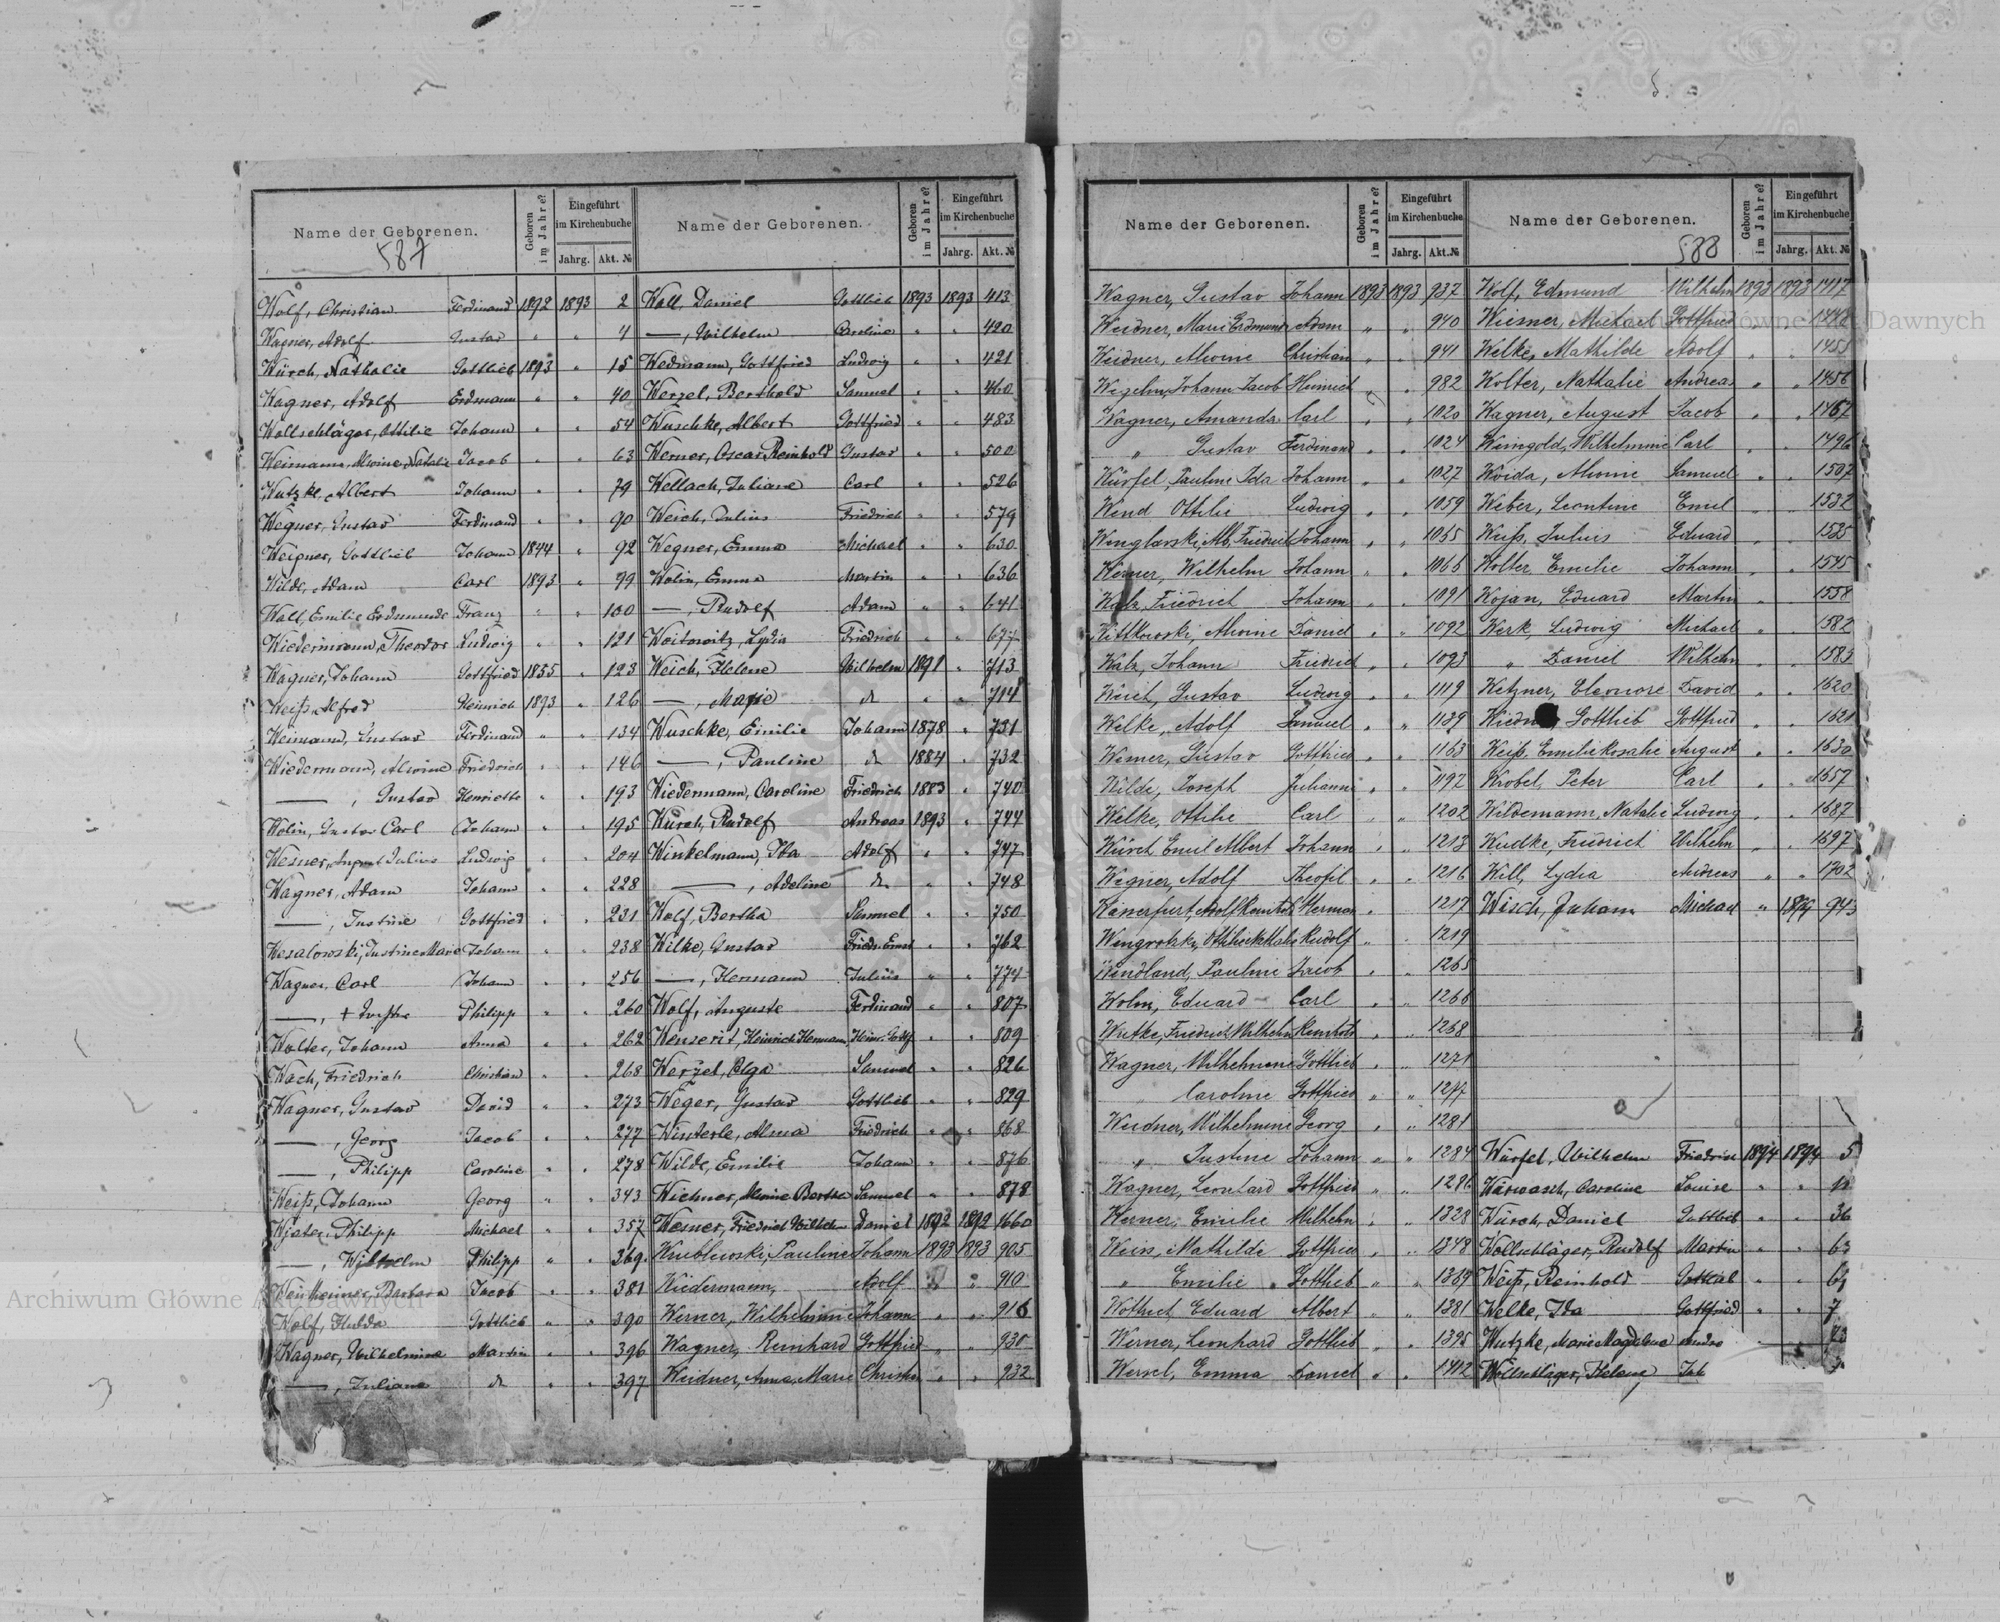 Name der Geborenen.
Geboren im Jahre?
Eingeführt im Kirchenbuche
Jahrg. Akt. №
Name der Geborenen.
Geboren im Jahre?
Eingeführt im Kirchenbuche
Jahrg. Akt. №
587
Wolf, Christian Ferdinand 1892 1893 2
Wagner, Adolf Gustav " " 4
Würch, Nathalie Gottlieb 1893 " 15
Wagner, Adolf Erdmann " " 40
Wollschläger, Ottilie Johann " " 54
Weimann, Alwine Natalie Jacob " " 63
Wutzke, Albert Johann " " 79
Wegner, Gustav Ferdinand " " 90
Gottlieb Johann 1844 " 92
Wilde, Adam Carl 1893 " 99
Wall, Emilie Erdmunde Franz " " 100
Wiedermann, Theodor Ludwig " " 121
Wagner, Johann Gottfried 1855 " 123
Weiß, Alfred Heinrich 1893 " 126
Weimann, Gustav Ferdinand " " 134
Wiedermann, Alwine Friedrich " " 146
—, Gustav Henriette " " 193
Wolin, Gustav Carl Johann " " 195
Wesner, August Julius Ludwig " " 204
Wagner, Adam Johann " " 228
—, Justine Gottfried " " 231
Wesalowski, Justine Marie Johann " " 238
Wagner, Carl Johann " " 256
—, Philipp " " 260
Wolter, Johann Anna " " 262
Wach, Friedrich Christian " " 268
Wagner, Gustav David " " 273
—, Georg Jacob " " 277
—, Philipp Caroline " " 278
Weiß, Johann Georg " " 343
Philipp Michael " " 357
—, Wilhelm Philipp " " 369
Barbara Jacob " " 381
Wolf, Hulda Gottlieb " " 390
Wagner, Wilhelmine Martin " " 396
—, Juliane do " " 397
Wall, Daniel Gottlieb 1893 1893 413
—, Wilhelm Caroline " " 420
Wedmann, Gottfried Ludwig " " 421
Wenzel, Berthold Samuel " " 460
Wuschke, Albert Gottfried " " 483
Werner, Oscar Reinhold Gustav " " 500
Wellach, Juliane Carl " " 526
Weich, Julius Friedrich " " 579
Wegner, Emma Michael " " 630
Wolin, Emma Martin " " 636
—, Rudolf Adam " " 641
Woitowitz, Lydia Friedrich " " 677
Weich, Helene Wilhelm 1891 " 713
—, Marie do " " 714
Wuschke, Emilie Johann 1878 " 731
—, Pauline do 1884 " 732
Wiedermann, Caroline Friedrich 1883 " 740
Würch, Rudolf Andreas 1893 " 744
Winkelmann, Ida Adolf " " 747
—, Adeline do " " 748
Wolf, Bertha Samuel " " 750
Wilke, Gustav Friedr. Ernst " " 762
—, Hermann Julius " " 774
Wolf, Auguste Ferdinand " " 807
Heinrich Hermann " " 809
Wenzel, Olga Samuel " " 826
Weger, Gustav Gottlieb " " 829
Winterle, Alma Friedrich " " 868
Wilde, Emilie Johann " " 876
Wichner, Alwine Bertha Samuel " " 878
Wesner, Friedrich Wilhelm Daniel 1892 1892 1660
Wrublewski, Pauline Johann 1893 1893 905
Wiedermann, Adolf " " 910
Werner, Wilhelmine Johann " " 916
Wagner, Reinhard Gottfried " " 930
Weidner, Anna Marie " " 932
Name der Geborenen.
Geboren im Jahre?
Eingeführt im Kirchenbuche
Jahrg. Akt.№
Name der Geborenen.
Geboren im Jahre?
Eingeführt im Kirchenbuche
Jahrg. Akt.№
588
Wagner, Gustav Johann 1893 1893 937
Weidner, Marie Erdmunde Adam " " 940
Weidner, Alwine Christian " " 941
Johann Jacob Heinrich " " 982
Wagner, Amanda Carl " " 1020
" Gustav Ferdinand " " 1024
Würfel, Pauline Ida Johann " " 1027
Wend Ottilie Ludwig " " 1059
Johann " " 1065
Werner, Wilhelm Johann " " 1066
Walz, Friedrich Johann " " 1091
Wittkowski, Alwine Daniel " " 1092
Walz, Johann Friedrich " " 1093
Gustav Ludwig " " 1119
Welke, Adolf Samuel " " 1139
Gustav Gottfried " " 1163
Wilde, Joseph Julianne " " 1192
Welke, Ottilie Carl " " 1202
Würch Emil Albert Johann " " 1213
Wegner, Adolf Theofil " " 1216
Herman " 1217
Rudolf " " 1219
Wendland, Pauline Jacob " " 1265
Wolin, Eduard Carl " " 1266
Friedrich Wilhelm " " 1268
Wagner, Wilhelmine Gottlieb " " 1271
" Caroline Gottfried " " 1277
Weidner, Wilhelmine Georg " " 1281
" Justine Johann " " 1284
Wagner, Leonhard Gottfried " " 1286
Werner, Emilie Wilhelm " " 1328
Weiss, Mathilde Gottfried " " 1348
" Emilie Gottlieb " " 1369
Eduard Albert " " 1381
Werner, Leonhard Gottlieb " " 1395
Emma Daniel " " 1412
Wolf, Edmund Wilhelm 1893 1893 1417
Wiesner, Michael Gottfried
Welke, Mathilde Adolf " "
Wolter, Nathalie Andreas " " 1456
Wagner, August Jacob " " 1467
Weingold, Wilhelmine Carl " " 1496
Woida, Alwine Samuel " " 1507
Weber, Leontine Emil " " 1532
Weiß, Julius Eduard " " 1535
Wolter Emilie Johann " " 1545
Wojan, Eduard Martin " " 1558
Werk, Ludwig Michael " " 1582
" Daniel Wilhelm " " 1583
Wetzner, Eleonore David " " 1620
Gottlieb Gottfried " " 1621
Weiß, Emilie Rosalie August " " 1630
Wrobel, Peter Carl " " 1657
Wildemann, Natalie Ludwig " " 1687
Friedrich Wilhelm " " 1697
Will, Lydia Andreas " " 1702
Wisch, Johann Michael " 1894 943
Würfel, Wilhelm Friedrich 1894 1894 5
Caroline Louise " "
Würch, Daniel Gottlieb " " 36
Wollschläger, Rudolf Martin " " 63
Weiß, Reinhold Gottlieb " "
Welke, Ida Gottfried " " 7
Wutzke, Marie Magdalena
Wollschläger, Helene
Archiwum Główne Akt Dawnych
Archiwum Główne Akt Dawnych